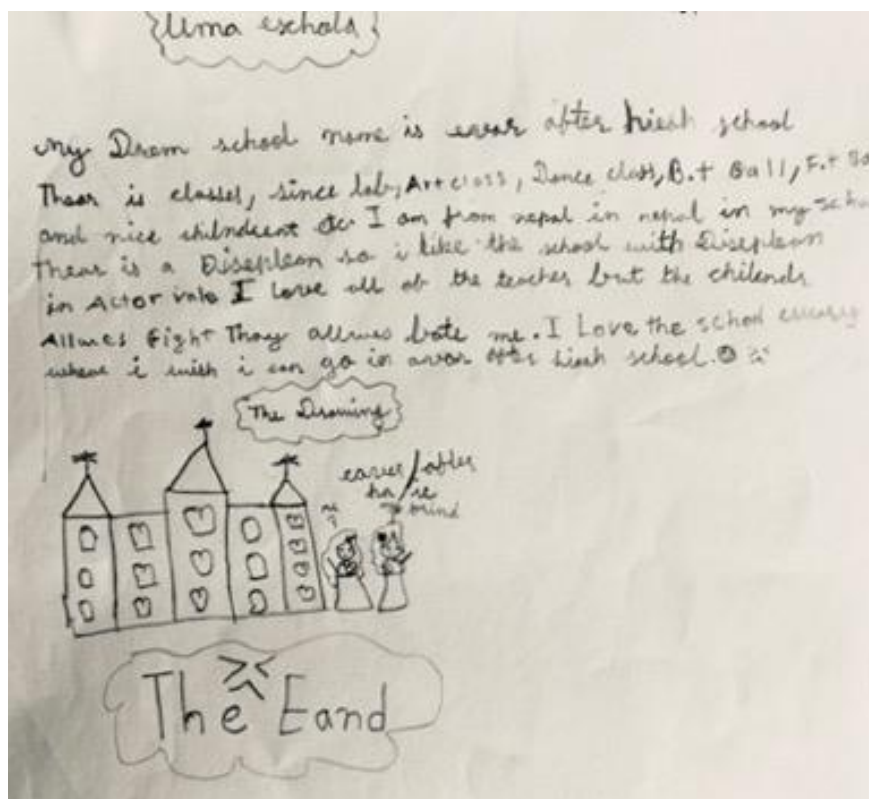 Uma eschola
My Drem school name is evar after hieh school
Thear is classes, since lab, Art class, Dance class, B.t Ball, F.t Ba
and nice chilndrent I am from nepal in nepal in my scho
Thear is a Diseplean so i like the school with Diseplean
in Actor I love all of the teacher but the chilends
Allwes Fight Thay allwes bote me. I Love the school
where i wish i can go in avar after hieh school.
The Drawing
after
me
The Eand